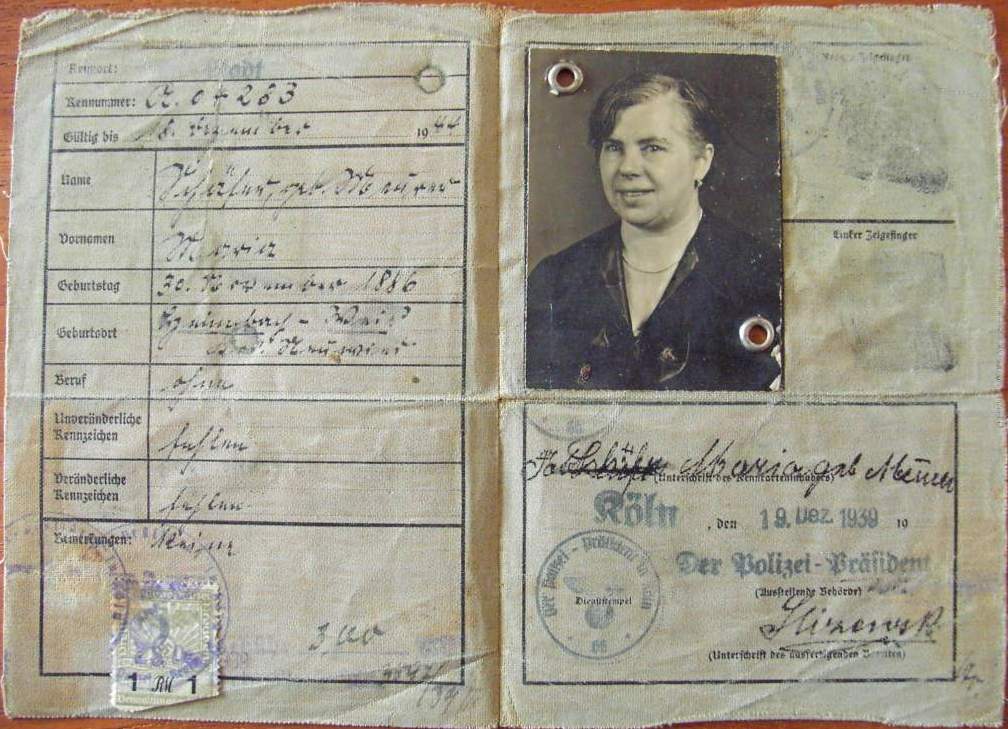 Kennort:
Stadt
Kennummer: A. 04283
Gültig bis 18. Dezember 1944
Name Schäfer, geb. Meurer
Vornamen Maria
Geburtstag 30. November 1886
Geburtsort Heimbach - Weis
Krs. Neuwied
Beruf ohne
Unveränderliche
Kennzeichen fehlen
Veränderliche
Kennzeichen fehlen
Bemerkungen: Keine
1 RM 1
Linker Zeigefinger
Maria geb Meurer
(Unterschrift des Kennkarteninhabers)
Köln, den 19. Dez. 1939 19
Der Polizei-Präsident
(Ausstellende Behörde)
Der Polizei-Präsident in Köln
Dienststempel
66
(Unterschrift des ausfertigenden Beamten)